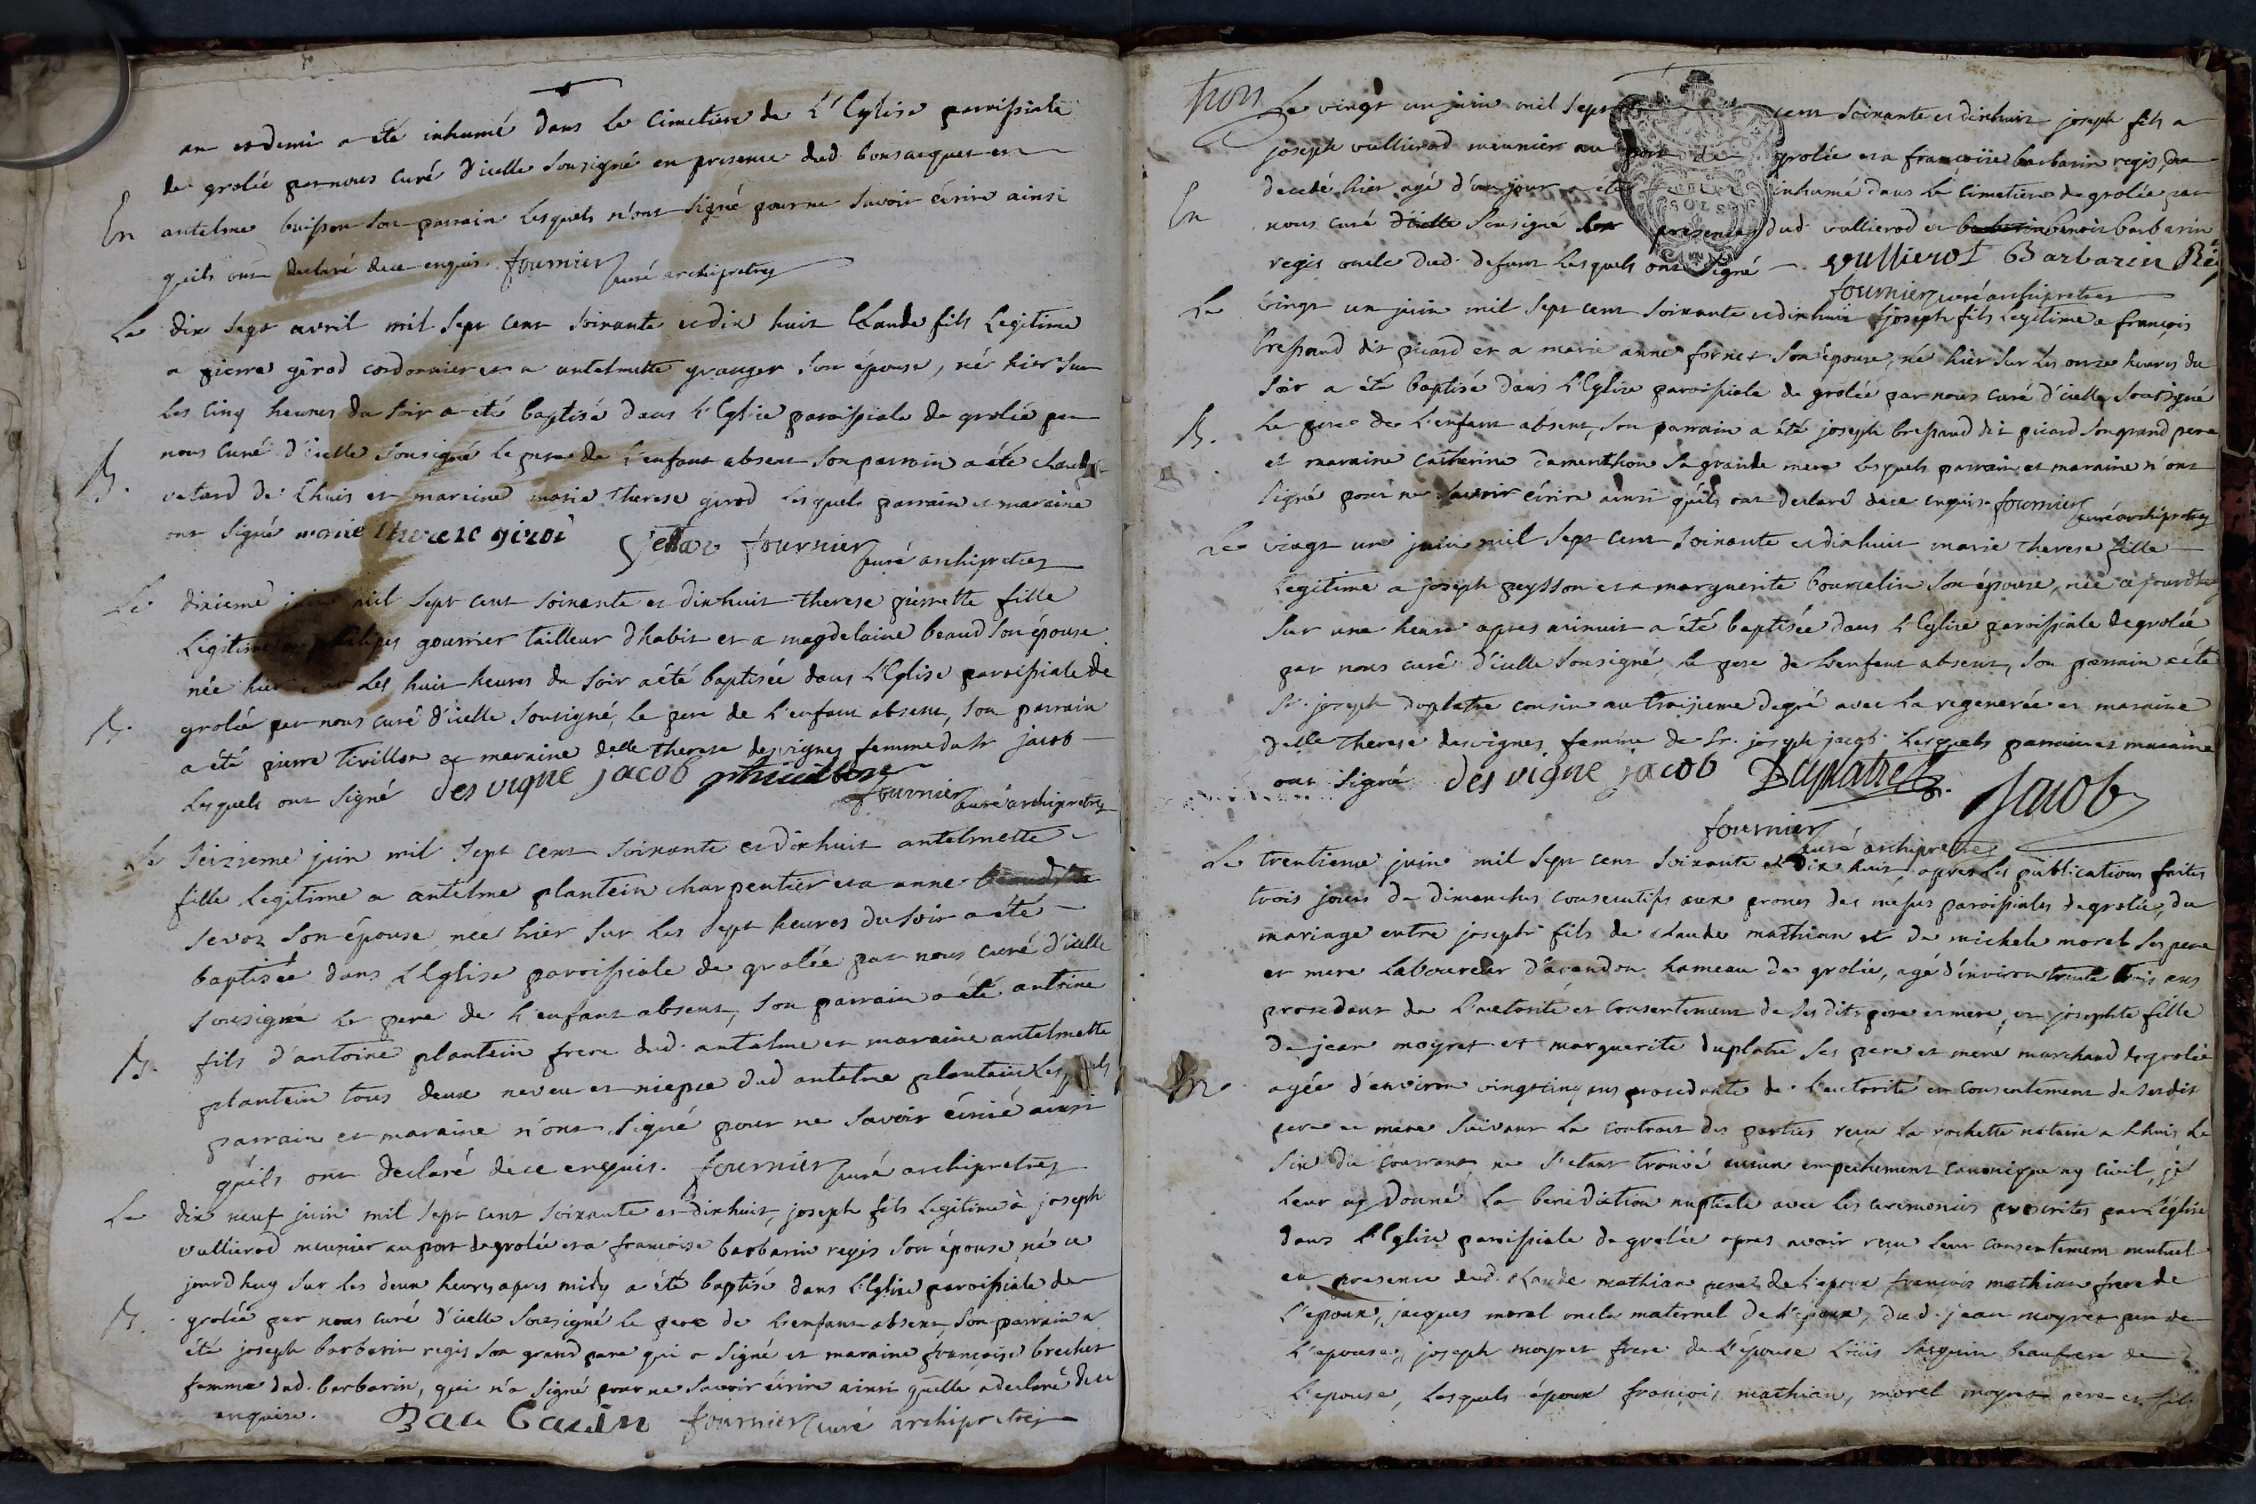 an et demi a été inhumé dans le Cimetiere de L'Eglise paroissiale
de grolée par nous curé d'icelle sousigné en presence dud. bonsacquet et
En
antelme buisson son parrain lesquels n'ont signé pour ne savoir écrire ainsi
qu'ils ont declaré de ce enquis. fournier curé archipretre
Le dix sept avril mil sept cent soixante et dix huit Claude fils Legitime
a pierre girod cordonnier et a antelmette granger son épouse, né hier sur
les cinq heures du soir a été baptisé dans L'Eglise paroissiale de grolée par
nous curé d'icelle sousigné le pere de l'enfant absent son parrain a été claude
B.
vetard de Lhuis et maraine marie therese girod lesquels parrain et maraine
ont signé marie therese girod fournier curé archipretre
Le dixieme juin mil sept cent soixante et dix huit therese pierrette fille
Legitime a gourrier tailleur d'habit et a magdelaine beaud son épouse
née hier sur les huit heures du soir a été baptisée dans L'Eglise paroissiale de
B.
grolée par nous curé d'icelle sousigné, le pere de L'enfant absent, son parrain
a été pierre tivillon et maraine delle therese desvignes femme du Sr jacob
lesquels ont signé des vigne jacob
fournier curé archipretre
Le seizieme juin mil sept cent soixante et dix huit antelmette
fille legitime a antelme plantein charpentier et a anne
sevoz son épouse née hier sur les sept heures du soir a été
baptisée dans L'Eglise paroissiale de grolée par nous curé d'icelle
sousigné le pere de l'enfant absent, son parrain a été antoine
B.
fils d'antoine plantein frere dud. antelme et maraine antelmette
plantein tous deux neveu et niepce dud antelme plantein lesquels
parrain et maraine n'ont signé pour ne savoir écrire ainsi
qu'ils ont declaré de ce enquis. fournier curé archipretre
Le dix neuf juin mil sept cent soixante et dix huit, joseph fils legitime à joseph
vullierod meunier au port de grolée et a françoise barbarin regis son épouse, né ce
jourd huy sur les deux heures apres midy a été baptisé dans L'Eglise paroissiale de
B.
grolée par nous curé d'icelle sousigné le pere de L'enfant absent, son parrain a
été joseph barbarin regis son grand pere qui a signé et maraine françoise brechet
femme dud. barbarin, qui n'a signé pour ne savoir écrire ainsi quelle a declaré de ce
enquise. Barbarin fournier curé archipretre
trois
Le vingt un juin mil sept cent soixante et dix huit joseph fils a
joseph vullierod meunier au port de grolée et a françoise barbarin regis,
decedé hier agé d'un jour a été inhumé dans le cimetiere de grolée par
En
nous curé d'icelle sousigné presence dud. vullierod et benoit barbarin
regis oncle dud. defunt lesquels ont signé vullierot Barbarin Ré
fournier curé archipretre
SOLS
Le vingt un juin mil sept cent soixante et dix huit joseph fils legitime a françois
bressand dit picard et a marie anne fornet son épouse, né hier sur les onze heures du
soir a été baptisé dans L'Eglise paroissiale de grolée par nous curé d'icelle sousigné
B.
Le pere de L'enfant absent, son parrain a été joseph bressand dit picard son grand pere
et maraine catherine damenthon sa grande mere lesquels parrain et maraine n'ont
signé pour ne savoir écrire ainsi qu'ils ont declaré de ce enquis fournier curé archipretre
Le vingt un juin mil sept cent soixante et dix huit marie therese fille
Legitime a joseph peysson et a marguerite bourcelin son épouse, née
sur une heure apres minuit a été baptisée dans L'Eglise paroissiale de grolée
par nous curé d'icelle sousigné, le pere de l'enfant absent, son parrain a été
Sr. joseph duplatre cousin au troisieme degré avec la regenerée et maraine
delle therese desvignes femme de Sr. joseph jacob lesquels parrain et maraine
ont signé des vigne jacob Duplatre
Jacob
fournier curé archipretre
Le trentieme juin mil sept cent soixante et dix huit, apres les publications faites
trois jours de dimanches consecutifs aux prones des messes paroissiales de grolée, du
mariage entre joseph fils de claude mathian et de michele morel ses pere
et mere Laboureur d'arandon hameau de grolée, agé d'environ trente trois ans
procedant de L'autorité et consentement de ses dits pere et mere, et josephte fille
de jean moyret et marguerite duplatre ses pere et mere marchand de grolée
M
agée d'environ vingt cinq ans procedante de L'autorité et consentement de ses dits
pere et mere suivant le contract des parties reçu la rochette notaire a Lhuis le
six du courrant, ne s'etant trouvé aucun empechement canonique ny civil, je
leur ay donné la benediction nuptiale avec les ceremonies prescrites par l'église
dans L'Eglise paroissiale de grolée apres avoir reçu leur consentement mutuel
en presence dud. Claude mathian pere de l'epoux, françois mathian frere de
L'epoux, jacques morel oncle maternel de L'epoux, dud. jean moyret pere de
L'epouse, joseph moyret frere de L'épouse Louis beaufrere de
L'epouse, lesquels époux françois mathian, morel moyret pere et fils